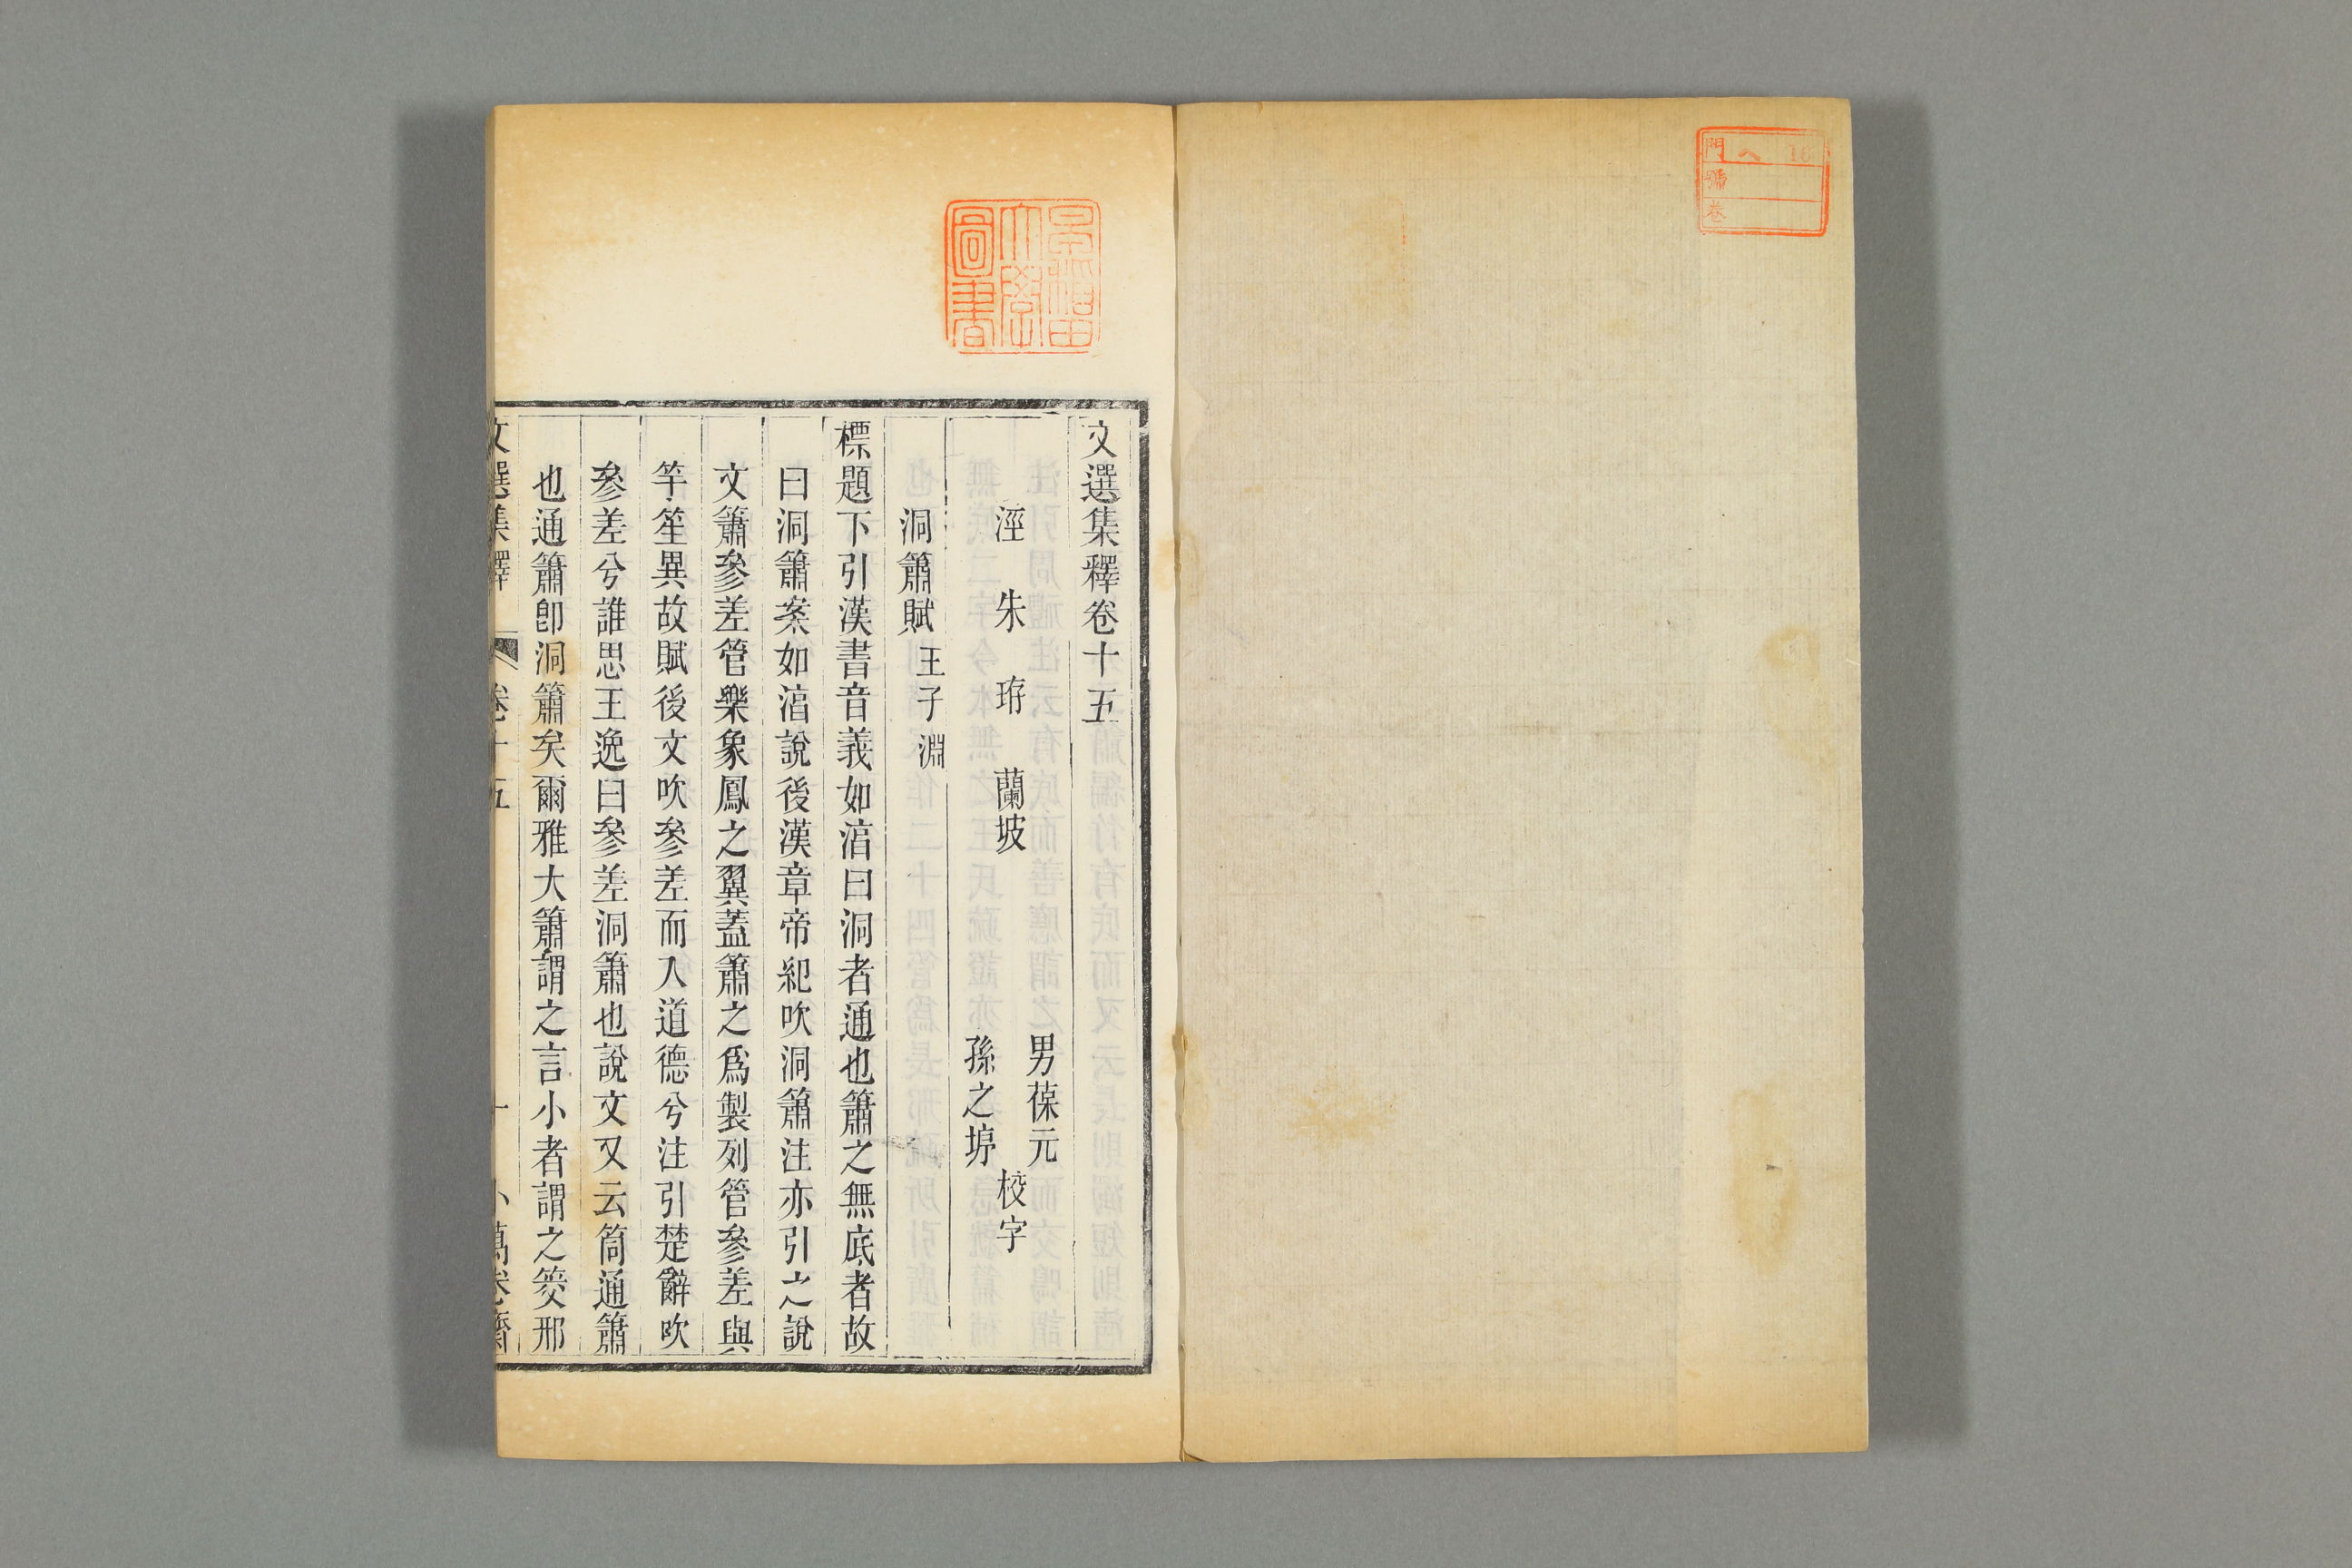 門 八 16
號
卷
早稻田
大學
圖書
文選集釋卷十五
涇 朱 珔 蘭坡
男葆元
孫之垿
校字
洞簫賦 王子淵
標題下引漢書音義如湻曰洞者通也簫之無底者故
曰洞簫案如湻說後漢章帝紀吹洞簫注亦引之說
文簫參差管樂象鳳之翼蓋簫之爲製列管參差與
竽笙異故賦後文吹參差而入道德兮注引楚辭吹
參差兮誰思王逸曰參差洞簫也說文又云筒通簫
也通簫卽洞簫矣爾雅大簫謂之言小者謂之筊邢
文選集釋 卷十五 一 小萬卷齋